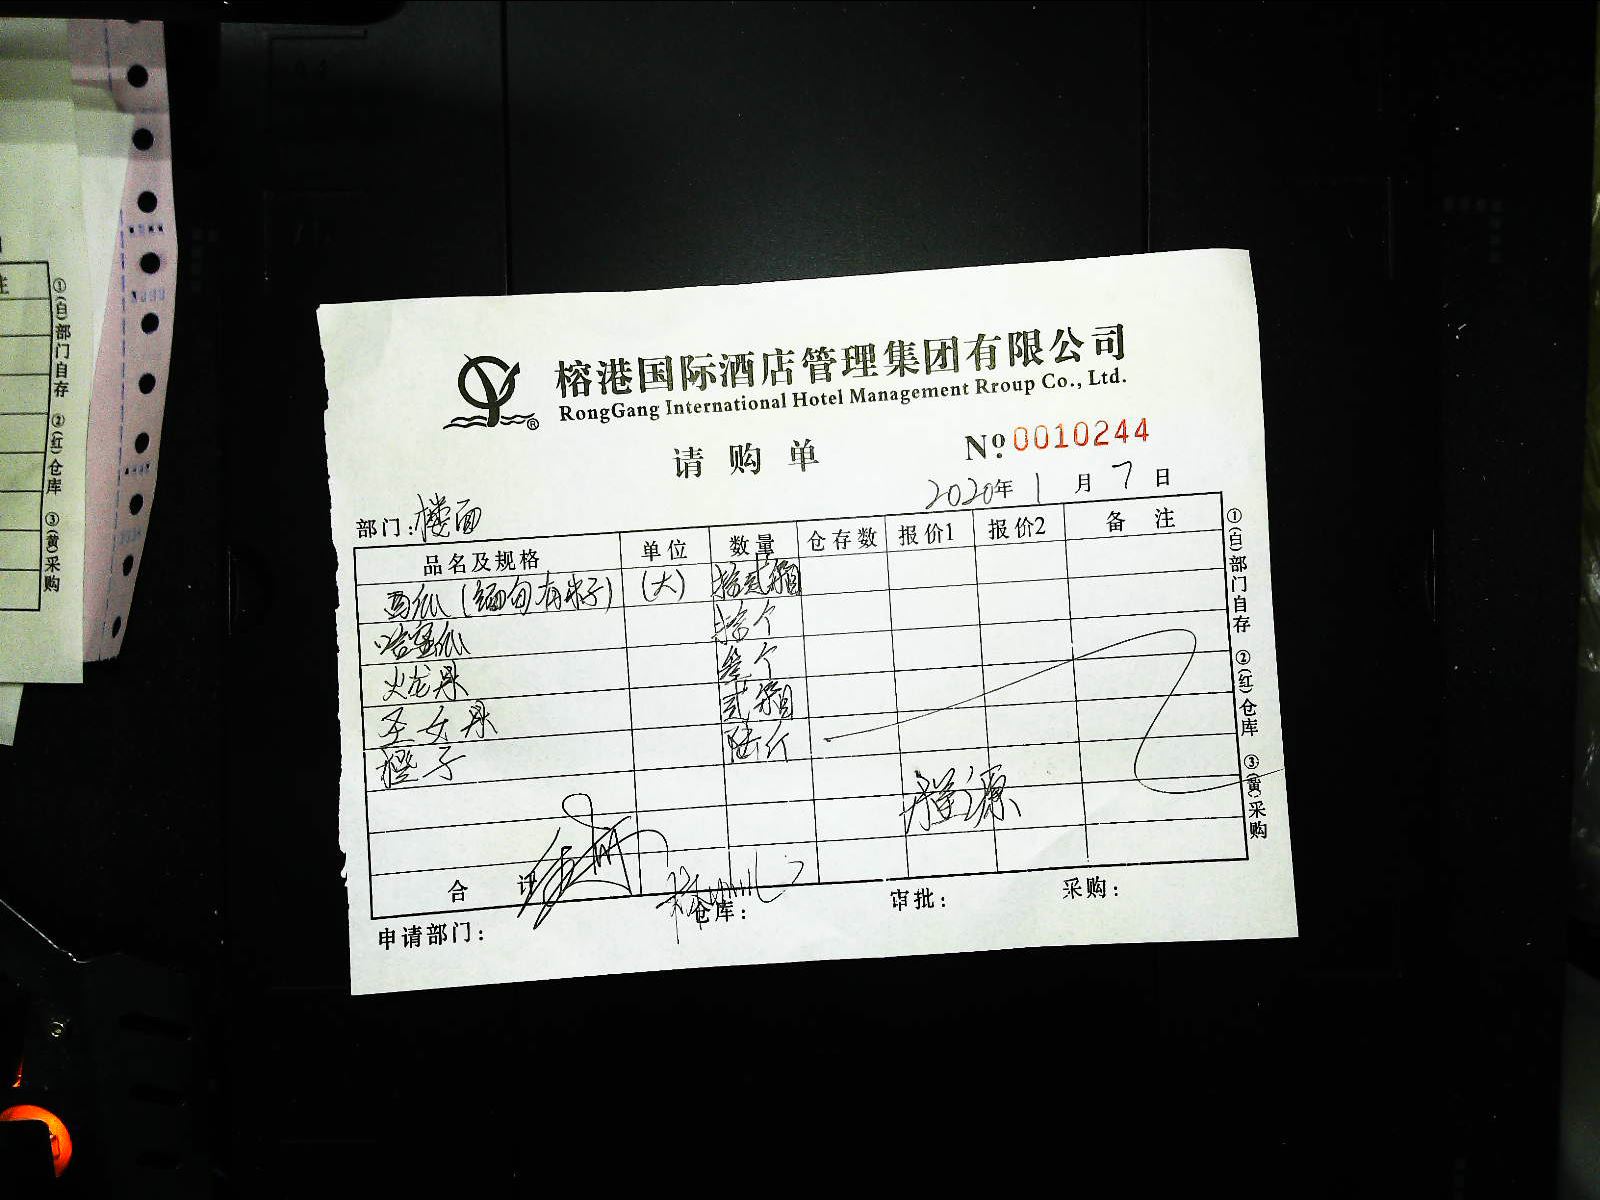 榕港国际酒店管理集团有限公司
RongGang International Hotel Management Rroup Co., Ltd.
请购单
Nº 0010244
2020年 1 月 7 日
部门:楼面
品名及规格 单位 数量 仓存数 报价1 报价2 备注
西瓜(缅甸有籽) (大) 拾贰箱
哈蜜瓜 拾个
火龙果 个
圣女果 贰箱
橙子 陆斤
合计
申请部门: 仓库: 审批: 采购:
①(白)部门自存 ②(红)仓库 ③(黄)采购
注
①(白)部门自存 ②(红)仓库 ③(黄)采购